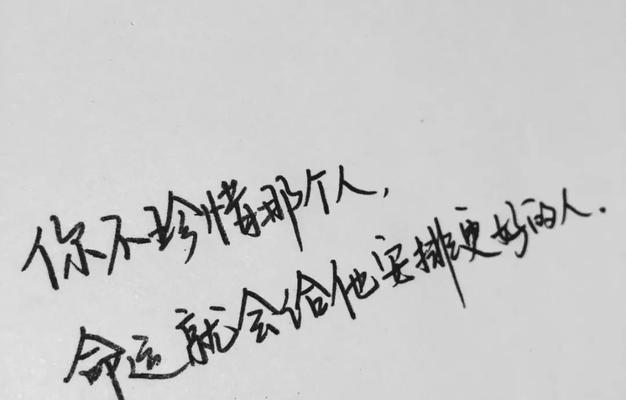 你不珍惜那个人,
命运就会给他安排更好的人.